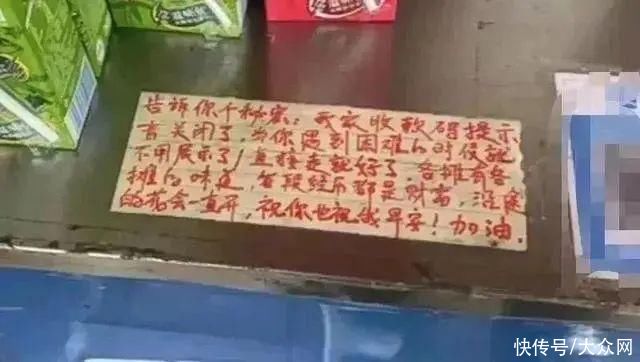 告诉你个秘密：我家收款码提示
音关闭了，当你遇到困难的时侯就
不用展示了！直接走就好了，各摊有各
摊的味道，每段经历都是财富，沿途
的花会一直开，祝你也祝我早安！加油．
快传号/大众网